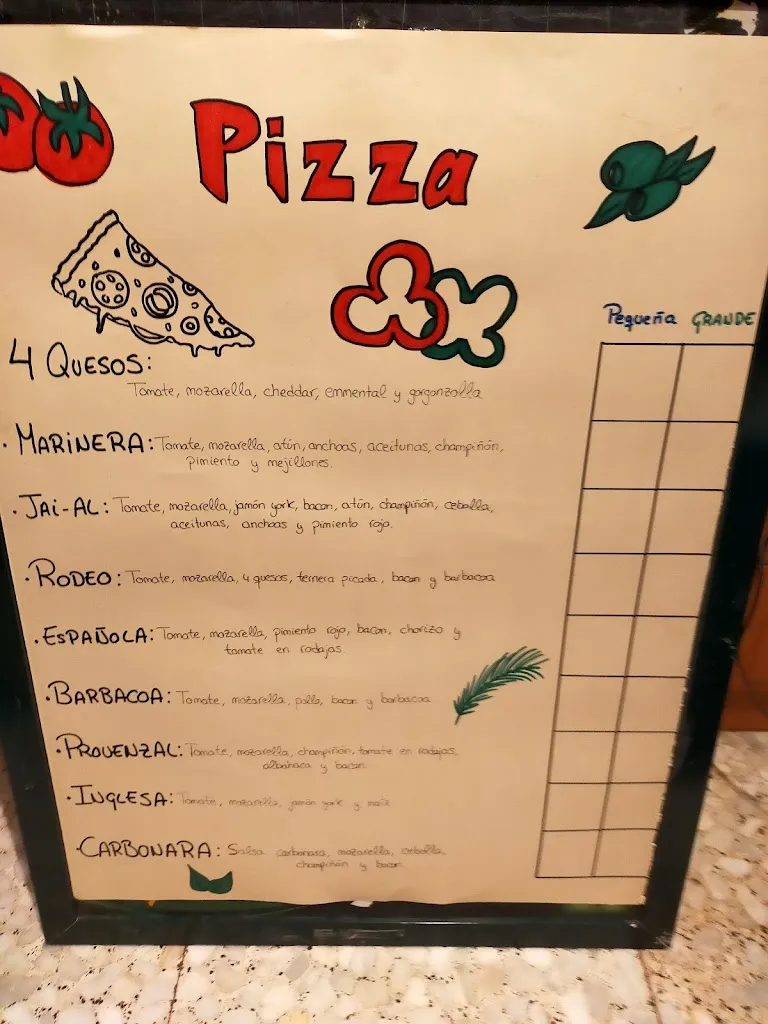 Pizza
Pequeña GRANDE
4 QUESOS:
Tomate, mozarella, cheddar, emmental y gorgonzolla
· MARINERA: Tomate, mozarella, atún, anchoas, aceitunas, champiñón,
pimiento y mejillones.
· JAI-AL: Tomate, mozarella, jamón york, bacon, atún, champiñón, cebolla,
aceitunas, anchoas y pimiento rojo.
· RODEO: Tomate, mozarella, 4 quesos, ternera picada, bacon y barbacoa
· ESPAÑOLA: Tomate, mozarella, pimiento rojo, bacon, chorizo y
tomate en rodajas.
· BARBACOA: Tomate, mozarella, pollo, bacon y barbacoa
· PROVENZAL: Tomate, mozarella, champiñón, tomate en rodajas,
albahaca y bacon.
· INGLESA: Tomate, mozarella, jamón york y maíz
· CARBONARA: Salsa carbonara, mozarella, cebolla,
champiñón y bacon.